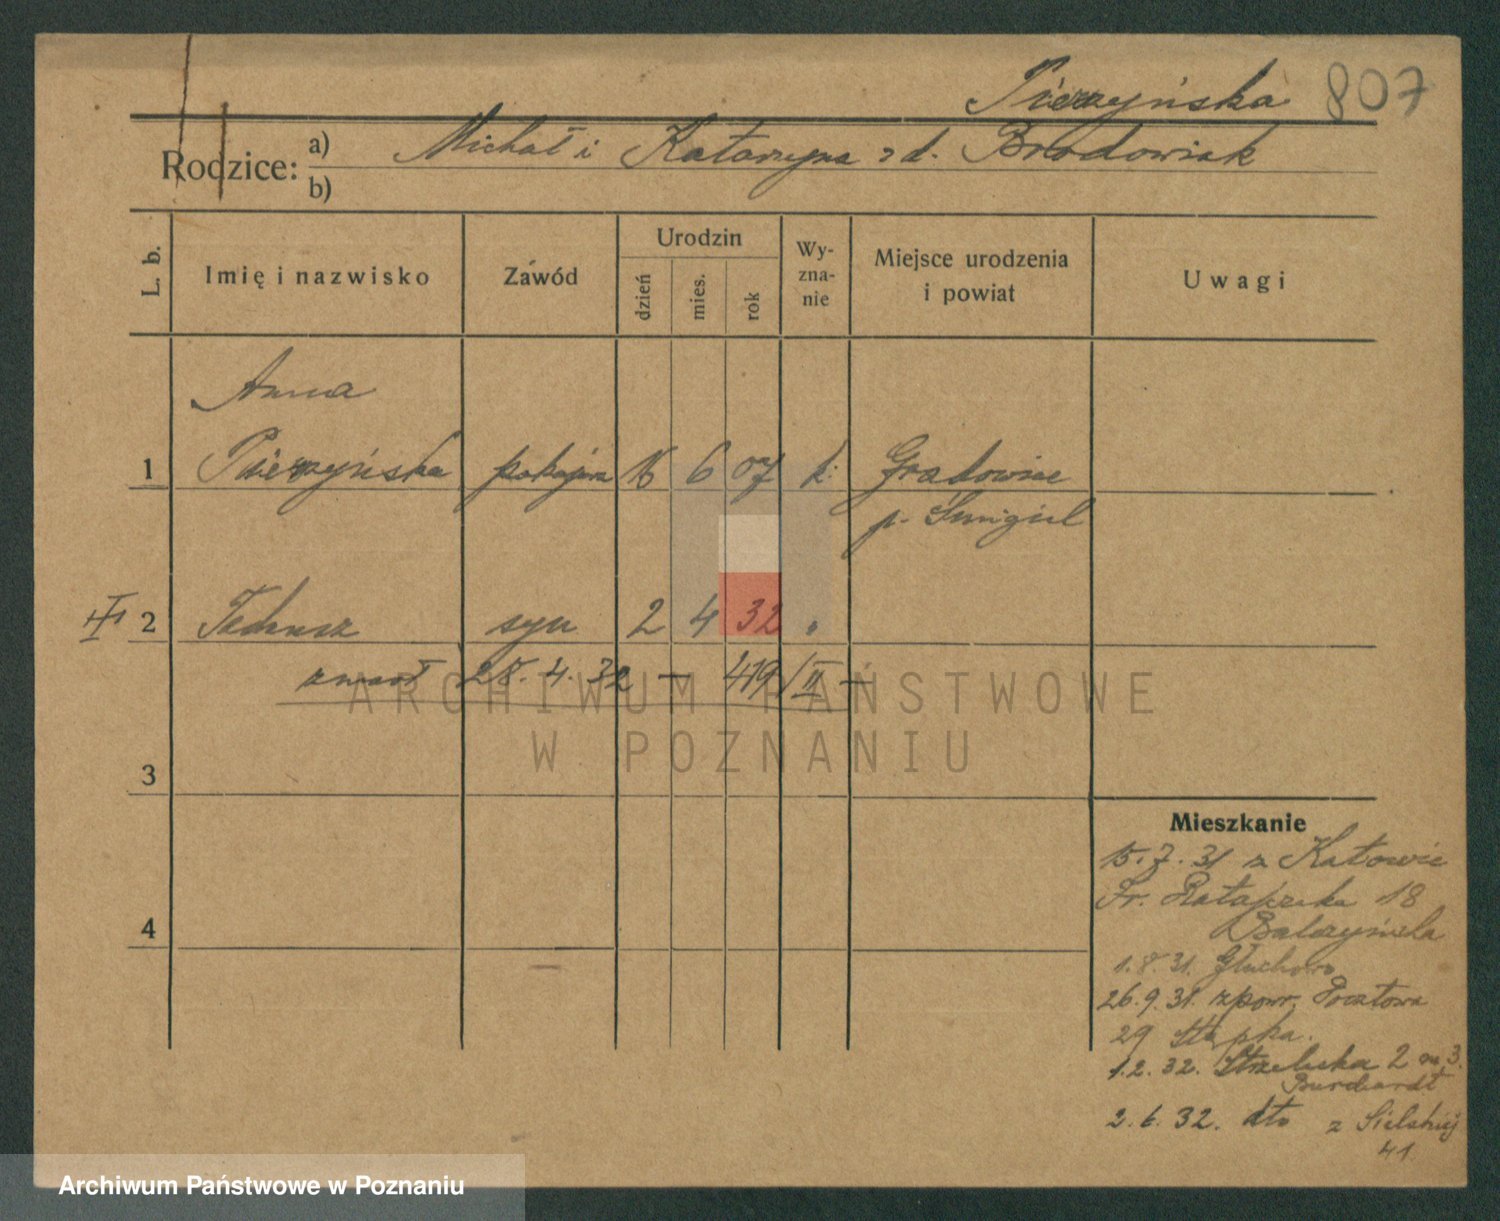 Pierzyńska 807
Rodzice: a) Michał i Katarzyna z d. Brodowiak
b)
L. b.
Imię i nazwisko
Zawód
Urodzin
dzień
mies.
rok
Wy-
zna-
nie
Miejsce urodzenia
i powiat
Uwagi
Anna
1 Pierzyńska pokojowa 16 6 07 k.
p. Śmigiel
2 Tadeusz syn 2 4 32 "
zmarł 28.4.32 — 419/II —
3
4
Mieszkanie
15.7.31 z Katowic
Fr. Ratajczaka 18
1.8.31. Głuchowo
26.9.31. z pow. Pocztowa
29
1.2.32. Strzelecka 2 m 3.
Burchardt
2.6.32. dto z Sielskiej
41
ARCHIWUM PAŃSTWOWE
W POZNANIU
Archiwum Państwowe w Poznaniu